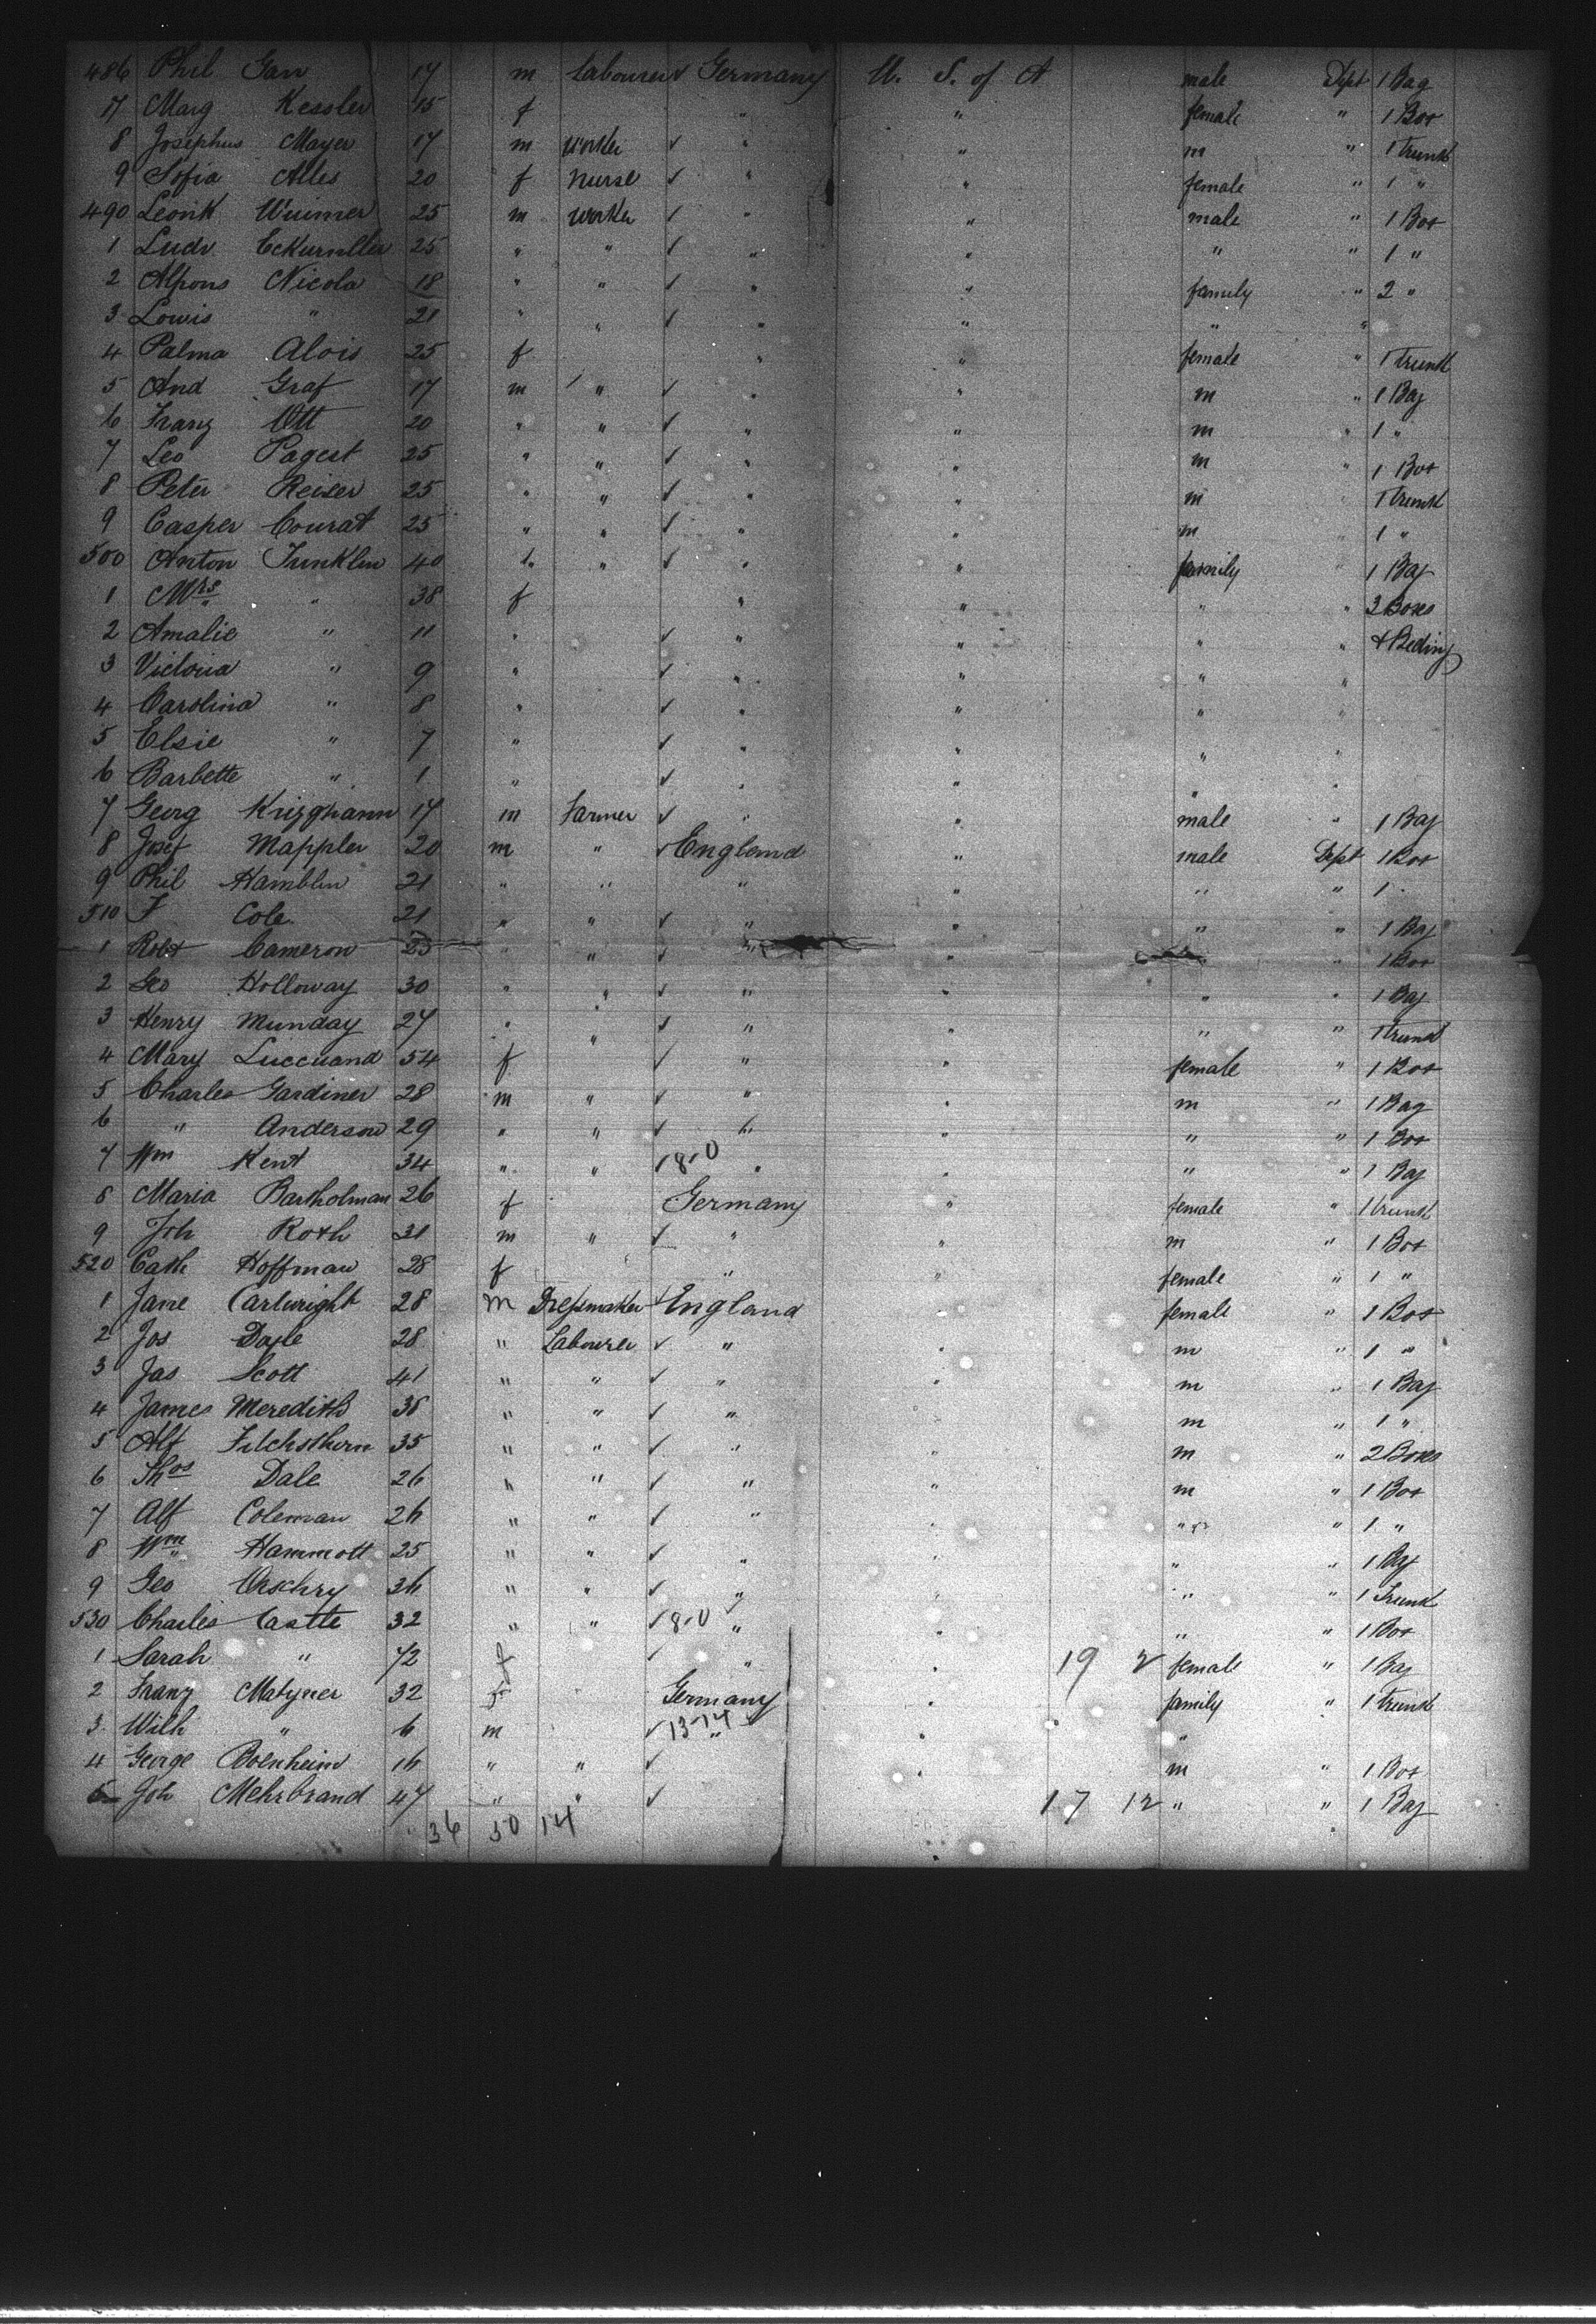 486 Phil Gan 17 m Labourer ✓ Germany U. S. of A male Dept 1 Bag
17 Marg Kessler 15 f " " female " 1 Box
8 Josephus Mayer 17 m worker ✓ " " m " 1 trunk
9 Sofia Alles 20 f nurse ✓ " " female " 1 "
490 Leonk 25 m worker ✓ " " male " 1 Box
1 Ludv 25 " " ✓ " " " " 1 "
2 Alfons Nicola 18 " " ✓ " " family " 2 "
3 Lowis " 21 " " ✓ " " " "
4 Palma Alois 25 f " " female " 1 trunk
5 And Graf 17 m " ✓ " " m " 1 Bag
6 Franz Ott 20 " " ✓ " " m " 1 "
7 Leo Pagest 25 " " ✓ " " m " 1 Box
8 Peter Reiser 25 " " ✓ " " m 1 trunk
9 Casper Courat 25 " " ✓ " " m 1 "
500 Anton Funklin 40 " " ✓ " " family 1 Bag
1 Mrs " 38 f " " " " 3 Boxes
2 Amalie " 11 " ✓ " " " " & Beding
3 Victoria " 9 " ✓ " " " "
4 Carolina " 8 " ✓ " " " "
5 Elsie " 7 " ✓ " " " "
6 Barbette " 1 " ✓ " " " "
7 Georg 17 m Farmer ✓ " " male " 1 Bag
8 Josef Mappler 20 m " ✓ England " male Dept 1 Box
9 Phil Hamblin 21 " " " " " " 1 "
510 F Cole 21 " " ✓ " " " " 1 Bag
1 Robt Cameron 23 " " ✓ " " " " 1 Box
2 Geo Holloway 30 " " ✓ " " " " 1 Bag
3 Henry Munday 27 " " ✓ " " " " 1 trunk
4 Mary Luccuand 54 f ✓ " " female " 1 Box
5 Charles Gardiner 28 m " ✓ " " m " 1 Bag
6 " Anderson 29 " " ✓ " " " " 1 Box
7 Wm Kent 34 " " ✓ 8-0 " " " 1 Bag
8 Maria Bartholman 26 f Germany " female " 1 trunk
9 Joh Roth 31 m " ✓ " " m " 1 Box
520 Cath Hoffman 28 f " " female " 1 "
1 Jane Cartwright 28 m Dressmaker ✓ England female " 1 Box
2 Jos Doyle 28 " Labourer ✓ " " m " 1 "
3 Jas Scott 41 " " ✓ " " m " 1 Bag
4 James Meredith 38 " " ✓ " m " 1 "
5 Alf 35 " " ✓ " " m " 2 Boxes
6 Thos Dale 26 " " ✓ " " m " 1 Box
7 Alf Coleman 26 " " ✓ " " " 1 "
8 Wm Hammott 25 " " ✓ " " " " 1 Bag
9 Geo 36 " " ✓ " " " 1 Trunk
530 Charles Castle 32 " " ✓ 8-0 " " " " 1 Box
1 Sarah " 72 f ✓ " " 19 2 female " 1 Bag
2 Franz Matyner 32 Germany " family " 1 trunk
3 Wilh " 6 m ✓ 13-14 " " "
4 George Boenheim 16 " " ✓ " m " 1 Box
5 Joh Mehrbrand 47 " " ✓ 17 12 " " 1 Bag
36 50 14